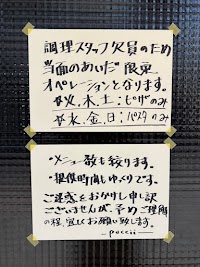 調理スタッフ欠員のため
当面のあいだ限定
オペレーションとなります。
火、木、土:ピザのみ
水、金、日:パスタのみ
・メニュー数も絞ります。
・提供時間もゆっくりです。
ご迷惑をおかけし申し訳
ございませんが、予めご理解
の程、宜しくお願い致します。